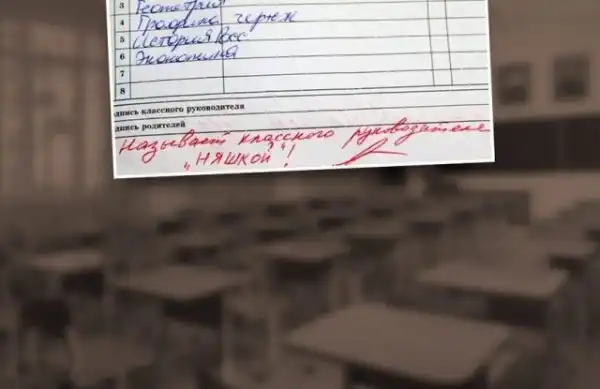 3 Геометрия
4
5 История Рос
6 Экономика
7
8
дпись классного руководителя
дпись родителей
Называет классного руководителя
„НЯШКОЙ"!